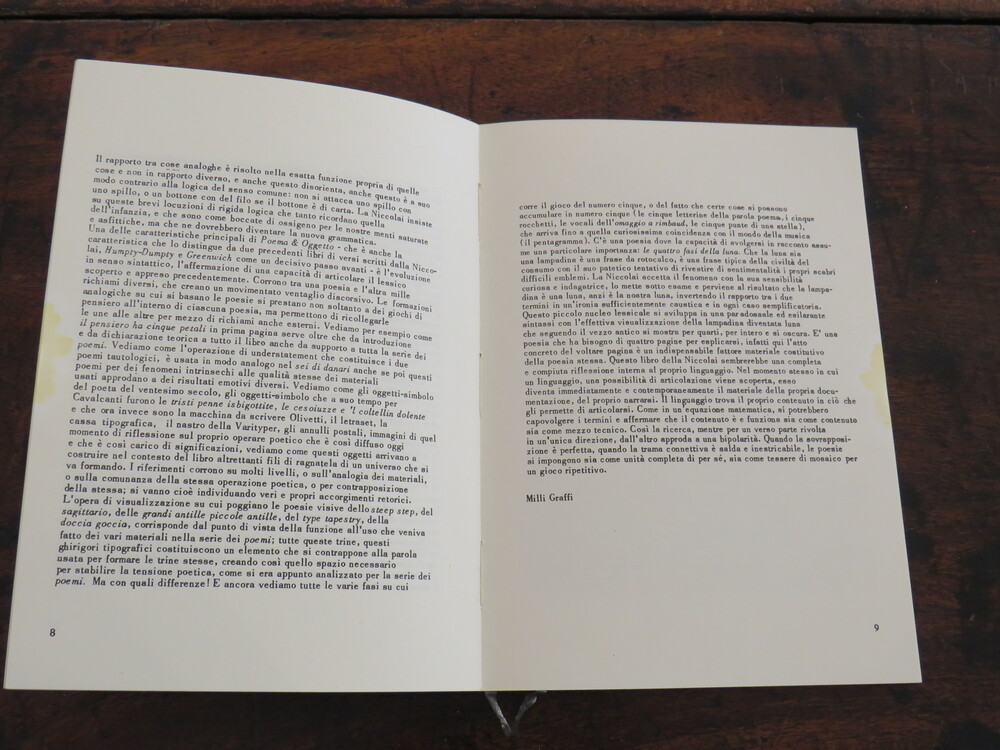 Il rapporto tra cose analoghe è risolto nella esatta funzione propria di quelle
cose e non in rapporto diverso, e anche questo disorienta, anche questo è a suo
modo contrario alla logica del senso comune: non si attacca uno spillo con
uno spillo, o un bottone con del filo se il bottone è di carta. La Niccolai insiste
su queste brevi locuzioni di rigida logica che tanto ricordano quella
dell'infanzia, e che sono come boccate di ossigeno per le nostre menti saturate
e asfittiche, ma che ne dovrebbero diventare la nuova grammatica.
Una delle caratteristiche principali di Poema & Oggetto - che è anche la
caratteristica che lo distingue da due precedenti libri di versi scritti dalla Nicco-
lai, Humpty-Dumpty e Greenwich come un decisivo passo avanti - è l'evoluzione
in senso sintattico, l'affermazione di una capacità di articolare il lessico
scoperto e appreso precedentemente. Corrono tra una poesia e l'altra mille
richiami diversi, che creano un movimentato ventaglio discorsivo. Le formazioni
analogiche su cui si basano le poesie si prestano non soltanto a dei giochi di
pensiero all'interno di ciascuna poesia, ma permettono di ricollegarle
le une alle altre per mezzo di richiami anche esterni. Vediamo per esempio come
il pensiero ha cinque petali in prima pagina serve oltre che da introduzione
e da dichiarazione teorica a tutto il libro anche da supporto a tutta la serie dei
poemi. Vediamo come l'operazione di understatement che costituisce i due
poemi tautologici, è usata in modo analogo nel sei di danari anche se poi questi
poemi per dei fenomeni intrinsechi alle qualità stesse dei materiali
usati approdano a dei risultati emotivi diversi. Vediamo come gli oggetti-simbolo
del poeta del ventesimo secolo, gli oggetti-simbolo che a suo tempo per
Cavalcanti furono le tristi penne isbigottite, le cesoiuzze e 'l coltellin dolente
e che ora invece sono la macchina da scrivere Olivetti, il letraset, la
cassa tipografica, il nastro della Varityper, gli annulli postali, immagini di quel
momento di riflessione sul proprio operare poetico che è così diffuso oggi
e che è così carico di significazioni, vediamo come questi oggetti arrivano a
costruire nel contesto del libro altrettanti fili di ragnatela di un universo che si
va formando. I riferimenti corrono su molti livelli, o sull'analogia dei materiali,
o sulla comunanza della stessa operazione poetica, o per contrapposizione
della stessa; si vanno cioè individuando veri e propri accorgimenti retorici.
L'opera di visualizzazione su cui poggiano le poesie visive dello steep step, del
sagittario, delle grandi antille piccole antille, del type tapestry, della
doccia goccia, corrisponde dal punto di vista della funzione all'uso che veniva
fatto dei vari materiali nella serie dei poemi; tutte queste trine, questi
ghirigori tipografici costituiscono un elemento che si contrappone alla parola
usata per formare le trine stesse, creando così quello spazio necessario
per stabilire la tensione poetica, come si era appunto analizzato per la serie dei
poemi. Ma con quali differenze! E ancora vediamo tutte le varie fasi su cui
8
corre il gioco del numero cinque, o del fatto che certe cose si possono
accumulare in numero cinque (le cinque letterine della parola poema, i cinque
rocchetti, le vocali dell'omaggio a rimbaud, le cinque punte di una stella),
che arriva fino a quella curiosissima coincidenza con il mondo della musica
(il pentagramma). C'è una poesia dove la capacità di svolgersi in racconto assu-
me una particolare importanza: le quattro fasi della luna. Che la luna sia
una lampadina è una frase da rotocalco, è una frase tipica della civiltà del
consumo con il suo patetico tentativo di rivestire di sentimentalità i propri scabri
difficili emblemi. La Niccolai accetta il fenomeno con la sua sensibilità
curiosa e indagatrice, lo mette sotto esame e perviene al risultato che la lampa-
dina è una luna, anzi è la nostra luna, invertendo il rapporto tra i due
termini in un'ironia sufficientemente caustica e in ogni caso semplificatoria.
Questo piccolo nucleo lessicale si sviluppa in una paradossale ed esilarante
sintassi con l'effettiva visualizzazione della lampadina diventata luna
che seguendo il vezzo antico si mostra per quarti, per intero e si oscura. E' una
poesia che ha bisogno di quattro pagine per esplicarsi, infatti qui l'atto
concreto del voltare pagina è un indispensabile fattore materiale costitutivo
della poesia stessa. Questo libro della Niccolai sembrerebbe una completa
e compiuta riflessione interna al proprio linguaggio. Nel momento stesso in cui
un linguaggio, una possibilità di articolazione viene scoperta, esso
diventa immediatamente e contemporaneamente il materiale della propria docu-
mentazione, del proprio narrarsi. Il linguaggio trova il proprio contenuto in ciò che
gli permette di articolarsi. Come in un'equazione matematica, si potrebbero
capovolgere i termini e affermare che il contenuto è e funziona sia come contenuto
sia come mezzo tecnico. Così la ricerca, mentre per un verso parte rivolta
in un'unica direzione, dall'altro approda a una bipolarità. Quando la sovrapposi-
zione è perfetta, quando la trama connettiva è salda e inestricabile, le poesie
si impongono sia come unità completa di per sé, sia come tessere di mosaico per
un gioco ripetitivo.
Milli Graffi
9